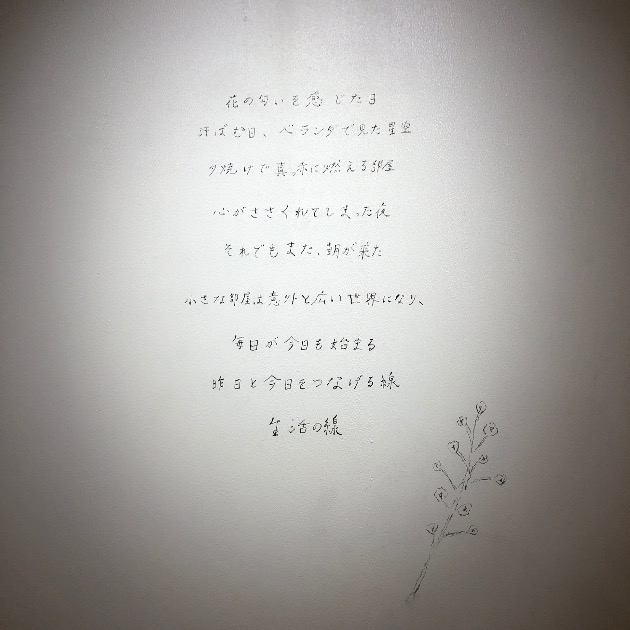 花の匂いを感じた日
汗ばむ日、ベランダで見た星空
夕焼けで真っ赤に燃える部屋
心がささくれてしまった夜
それでもまた、朝が来た
小さな部屋は意外と広い世界になり、
毎日が今日も始まる
昨日と今日をつなげる線
生活の線